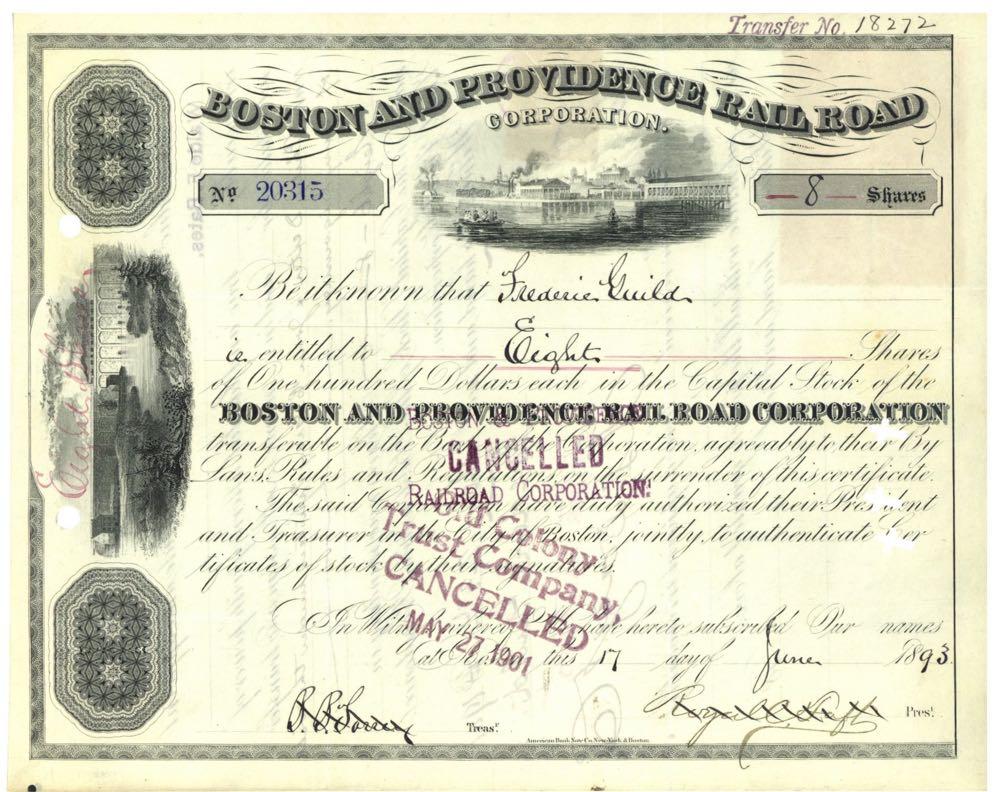 Transfer No. 18272
BOSTON AND PROVIDENCE RAIL ROAD
CORPORATION.
No 20315
8 Shares
Be it known that Frederic Guild
is entitled to Eight Shares
of One hundred Dollars each in the Capital Stock of the
BOSTON AND PROVIDENCE RAIL ROAD CORPORATION
transferable on the Books of said Corporation, agreeably to their By
Laws, Rules and Regulations on the surrender of this certificate.
The said Corporation have duly authorized their President
and Treasurer in the City of Boston, jointly, to authenticate Cer
tificates of stock by their signatures.
In Witness whereof We have hereto subscribed Our names
at Boston this 17 day of June 1893.
Treasr.
Royal C. Taft Prest.
American Bank Note Co. New York & Boston
Eight Shares
BOSTON & PROVIDENCE
CANCELLED
RAILROAD CORPORATION.
Old Colony
Trust Company,
CANCELLED
MAY 27 1901